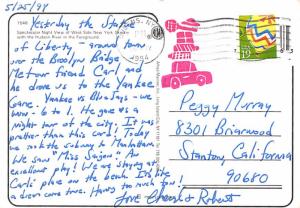 5/25/94
Yesterday the Statue
of Liberty - around town
over the Brooklyn Bridge.
Met our friend Carl and
he drove us to the Yankee
Game. Yankee vs Blue Jays - we
won - 6 to 1. He gave us a
night tour of the city! It was
prettier than this card! Today
we rode the subway to Manhattan.
We saw "Miss Saigon" An
excellent play! We are staying at
Carl's place on the beach. It's like
a dream come true. Having too much fun!
Love Cheryl & Robert
Spectacular Night View of West Side New York Skyline
with the Hudson River in the Foreground
1994
19
Peggy Murray
8301 Briarwood
Stanton, California
90680